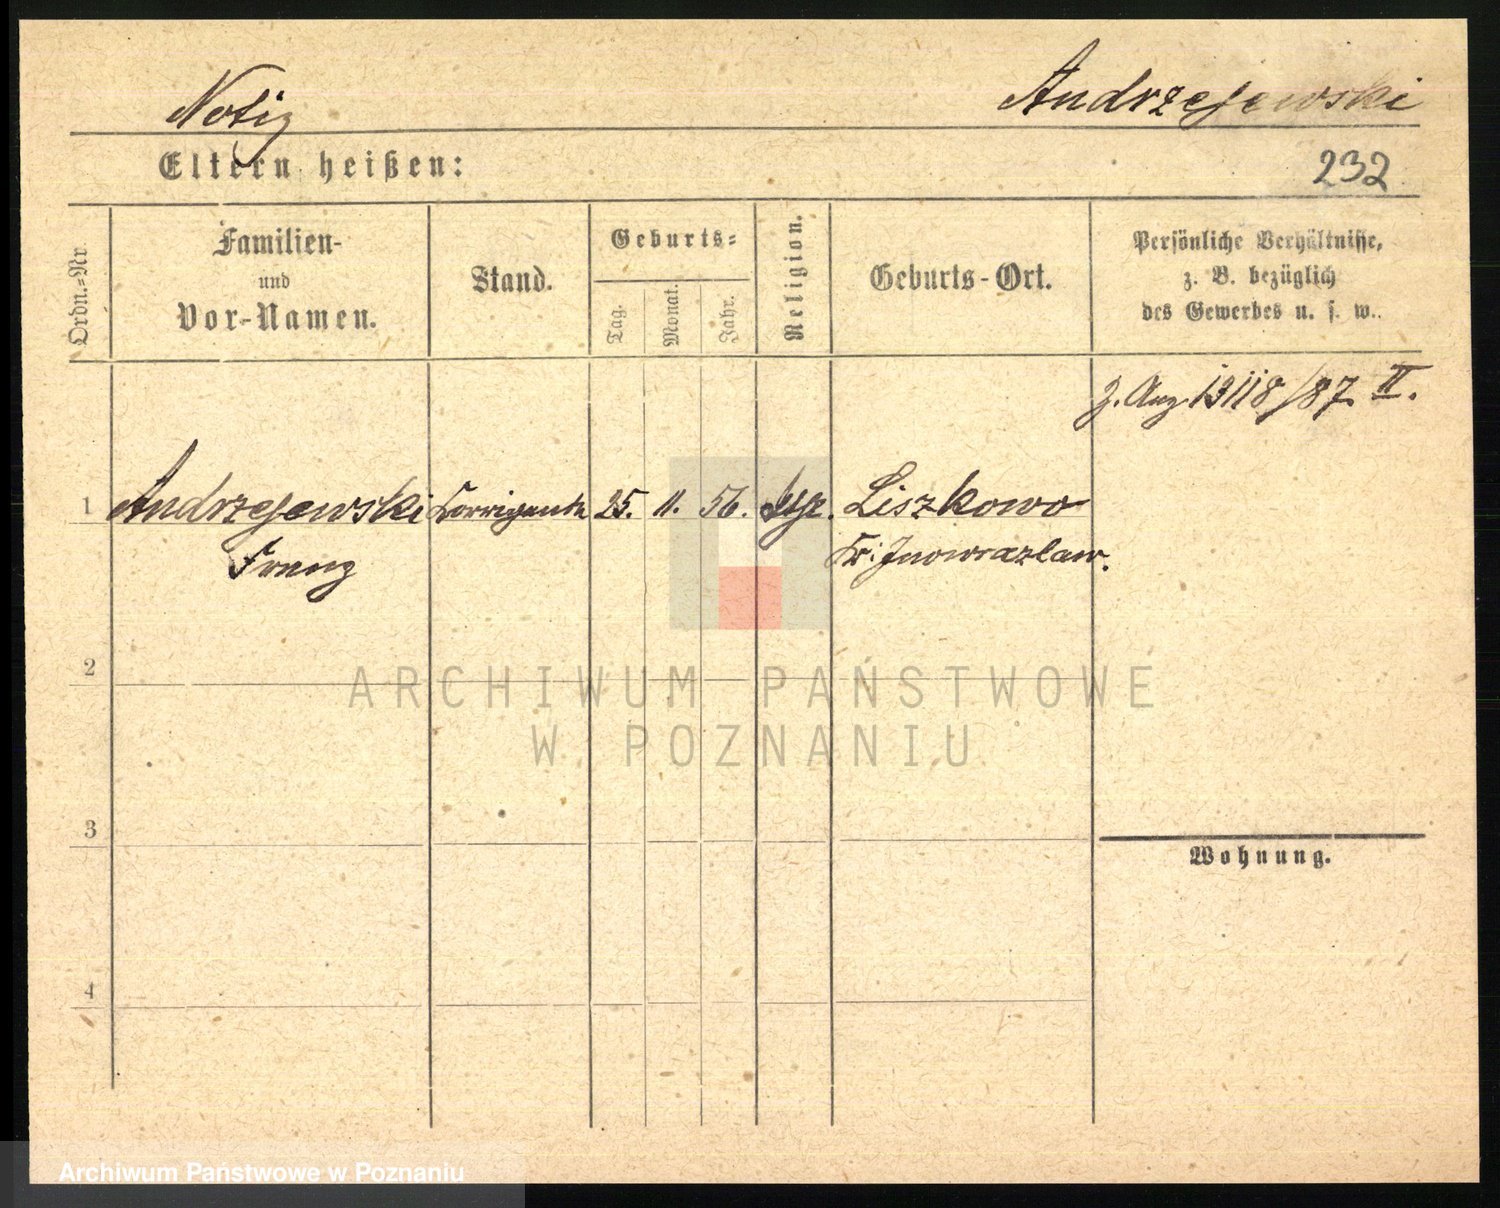 Notiz
Andrzejewski
Eltern heißen:
232
Ordn.-Nr.
Familien-
und
Vor-Namen.
Stand.
Geburts-
Tag.
Monat.
Jahr.
Religion.
Geburts-Ort.
Persönliche Verhältnisse,
z. B. bezüglich
des Gewerbes u. s. w.
13118/87 II.
1
Andrzejewski
Franz
25.
11.
56.
Liszkowo
Kr. Inowrazlaw.
2
3
4
Wohnung.
ARCHIWUM PAŃSTWOWE
W POZNANIU
Archiwum Państwowe w Poznaniu